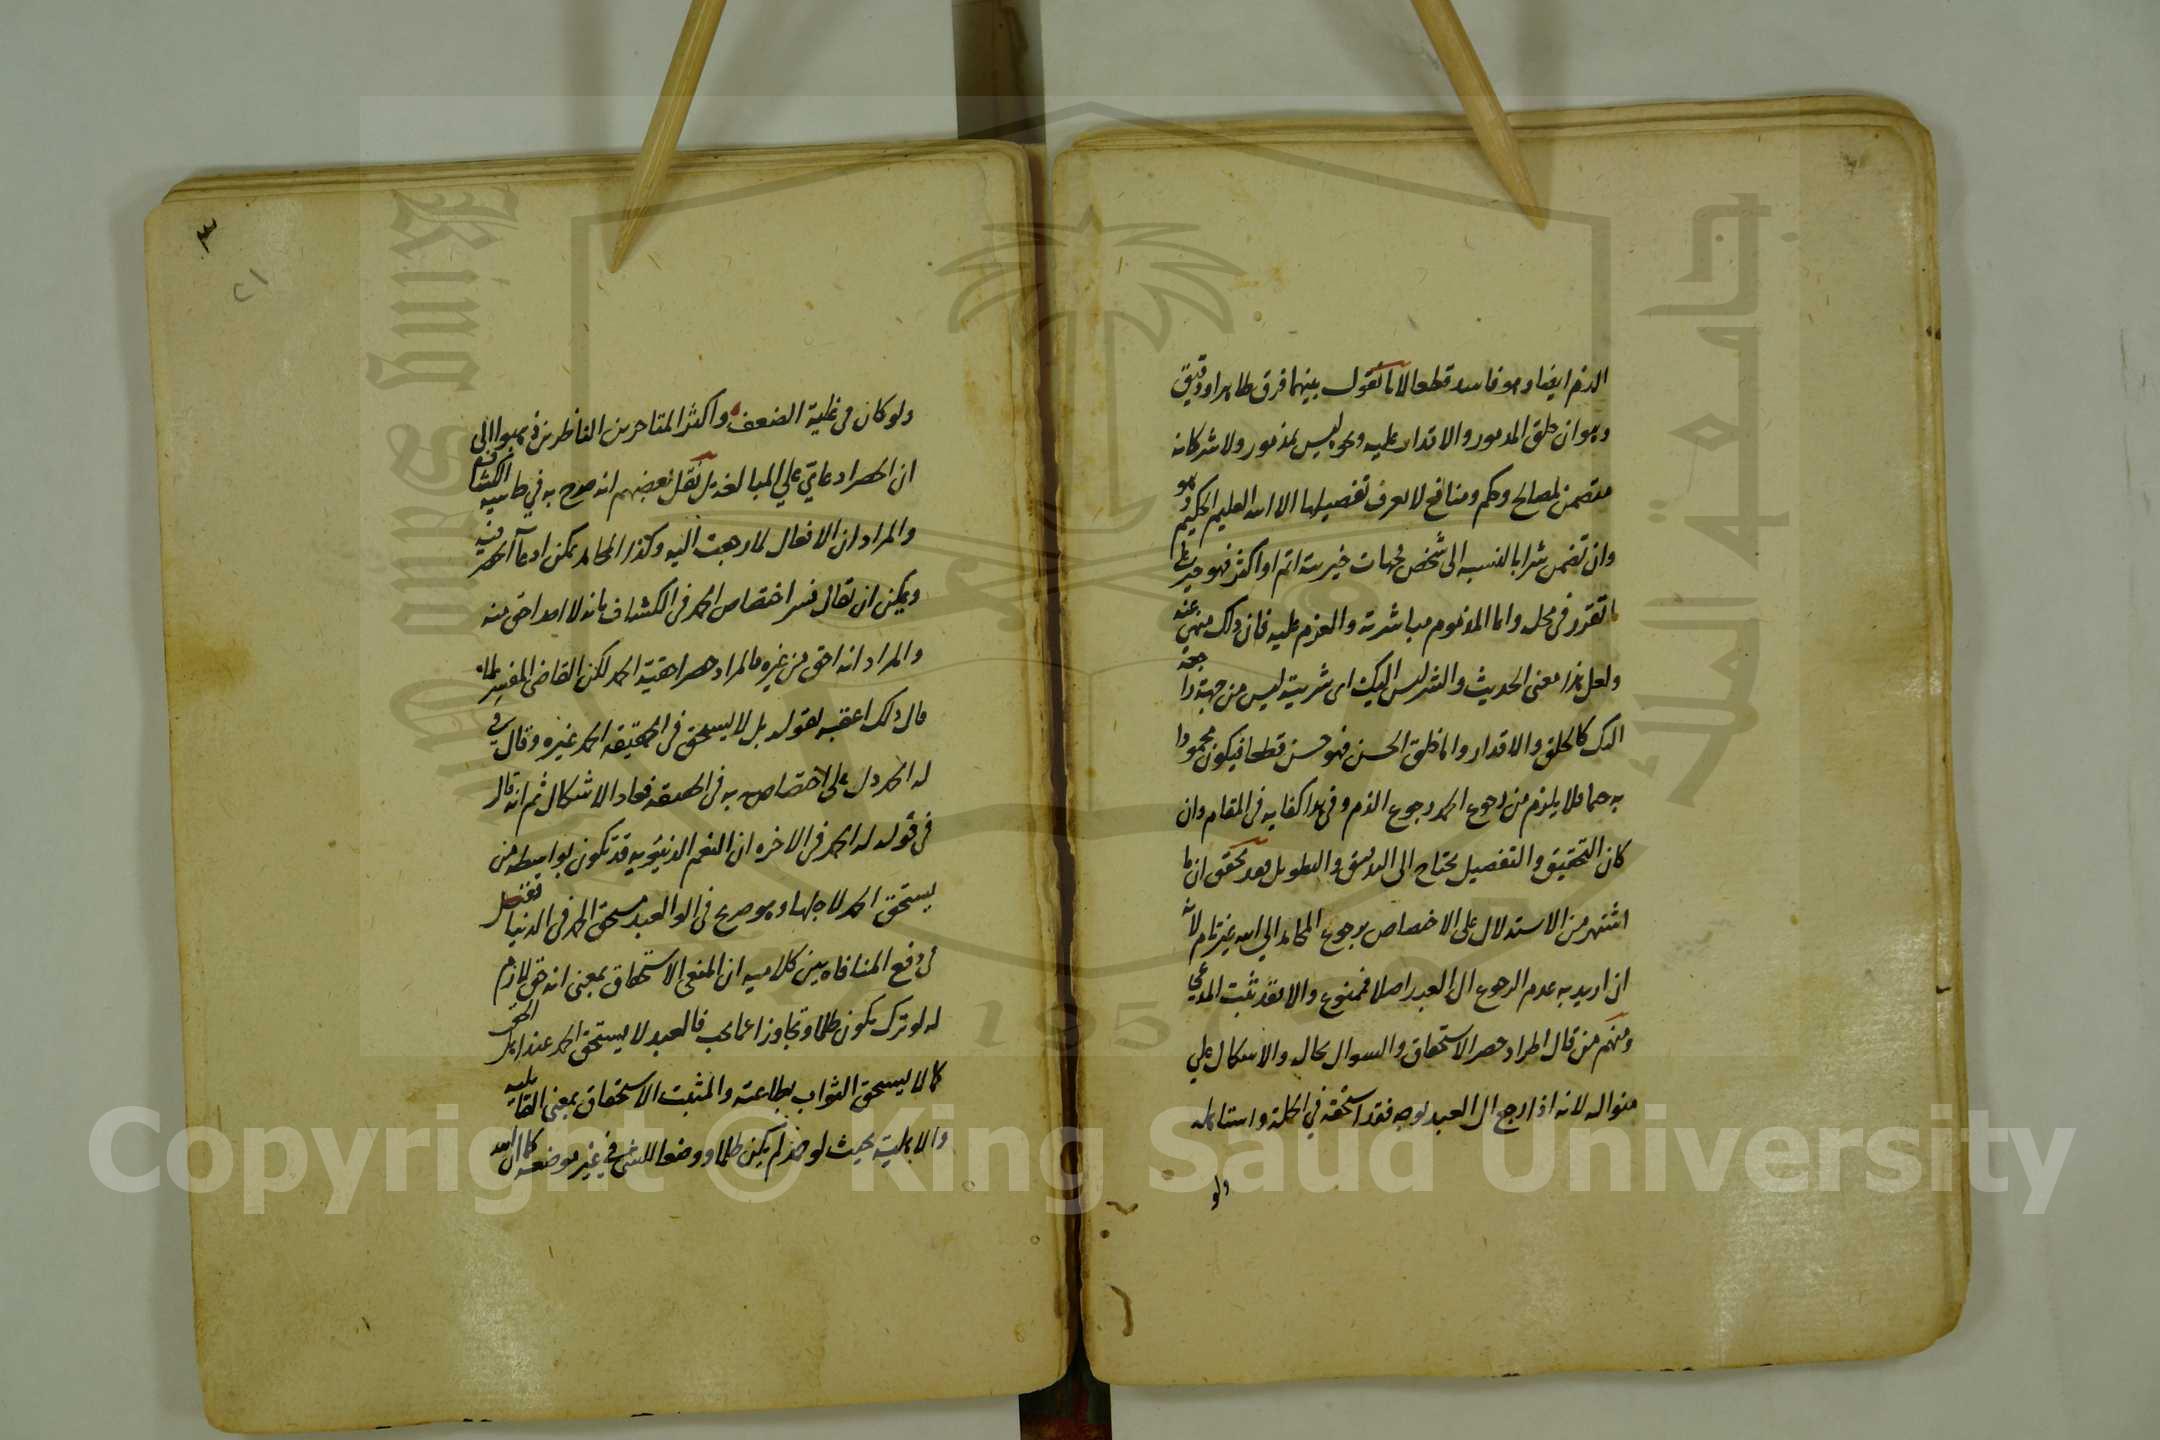 الذم ايضا وهو فاسد قطعا لانا نقول بينهما فرق ظاهر او دقيق
وهو ان خلق المذموم والاقدار عليه ونحوه ليس بمذموم ولا شر كانه
متضمن لمصالح وحكم ومنافع لا يعرف تفصيلها الا الله العليم الحكيم وهو
وان تضمن شرا بالنسبه الى شخص فجهات خيريته اتم او اكثر فهو خير على
ما تقرر في محله واما المذموم مباشرته والعزم عليه فان ذلك منهي عنه
ولعل هذا معنى الحديث والشر ليس اليك اى شريته ليس من جهة راجعة
اليك كالخلق والاقدار واما خلق الحسن فهو حسن قطعا فيكون محمودا
به حما فلا يلزم من رجوع الحمد رجوع الذم وفي هذا كفايه في المقام وان
كان التحقيق والتفصيل يحتاج الى التدقيق والتطويل فقد تحقق ان ما
اشتهر من الاستدلال على الاختصاص برجوع المحامد الى الله غير تام لانه
ان اريد به عدم الرجوع الى العبد اصلا فممنوع والا فقد ثبت المدعى
ومنهم من قال المراد حصر الاستحقاق والسوال بحاله والاشكال على
منواله لانه اذا رجع الى العبد بوجه فقد استحقه في الجملة واستاهله
ولو
٣
٢١
ولو كان في غاية الضعف واكثر المتاخرين الناظرين ذهبوا الى
ان الحصر ادعائي على المبالغة بل نقل بعضهم انه صرح به في حاشية الكشاف
والمراد ان الافعال لما رجعت اليه وكذا المحامد يمكن ادعآ الحصر فيه
ويمكن ان يقال فسر اختصاص الحمد في الكشاف بانه لا احد احق منه
والمراد انه احق من غيره فالمراد حصر احقية الحمد لكن القاضى المفسر لما
قال ذلك اعقبه بقوله بل لا يستحق في الحقيقه الحمد غيره وقال في
له الحمد دل على اختصاصه به في الحقيقه فعاد الاشكال ثم انه قال
في قوله له الحمد في الاخره ان النعم الدنيويه قد تكون بواسطه من
يستحق الحمد لاجلها وهو صريح في ان العبد مستحق الحمد في الدنيا فنقول
في دفع المنافاه بين كلاميه ان المنفى الاستحقاق بمعنى انه حق لازم
له لو ترك يكون ظلما وتجاوزا عما يجب فالعبد لا يستحق الحمد عند اهل الحق
كما لا يستحق الثواب بطاعته والمثبت الاستحقاق بمعنى القابليه
والاهلية بحيث لو حمد لم يكن ظلما ووضعا للشئ في غير موضعه كما ان الله
Copyright © King Saud University
King Saud University
جامعة الملك
1957